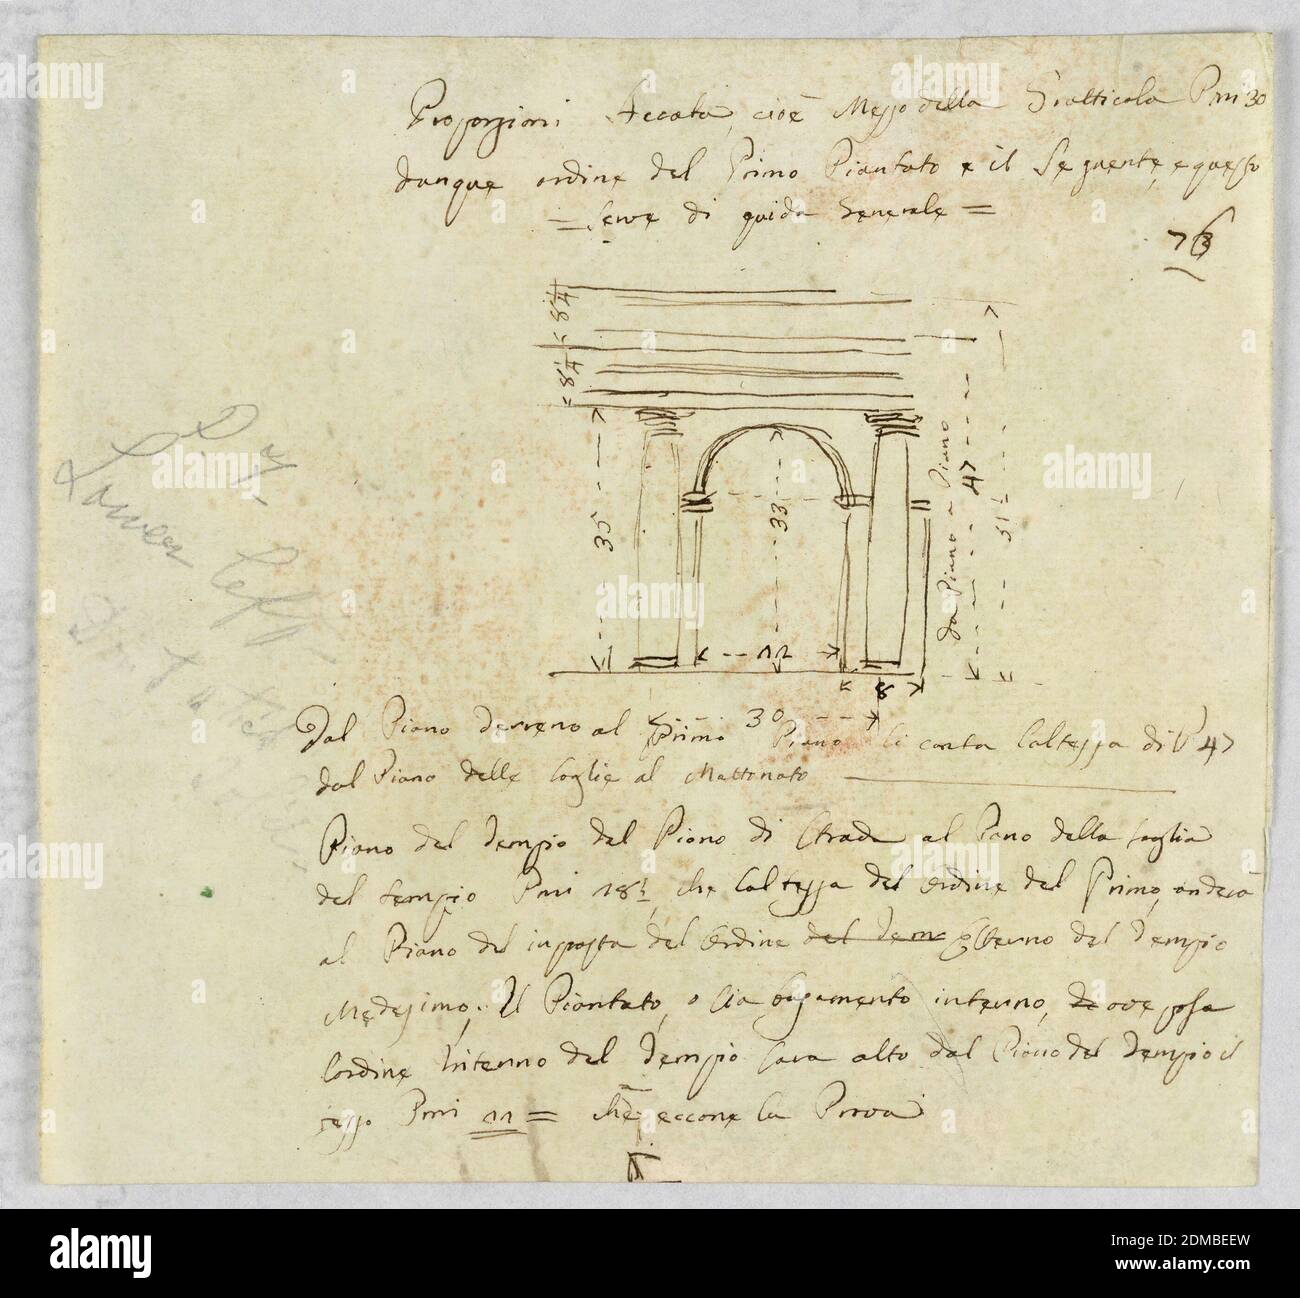 Proporzioni Accata, cioè Mezzo della Gratticola Pmi 30
dunque ordine del Primo Piantato e il Seguente, e questo
= Serve di guida Generale =
76
8 1/4
8 1/4
35
33
22
8
30
da Piano a Piano
47
51 1/2
Dal Piano terreno al Primo Piano si conta l'altezza di P 47
dal Piano delle Soglie al Mattonato
Piano del Tempio dal Piano di Strada al Piano della Soglia
del tempio Pmi 18 1/2, che l'altezza del ordine del Primo, anderà
al Piano del imposta del Ordine del Tem Esterno del Tempio
Medesimo. Il Piantato, o sia basamento interno, ove posa
l'ordine Interno del Tempio sara alto dal Piano del Tempio il
rezzo Pmi 11 = chè eccone la Prova
Lower left
alamy
a
DMBEEW
www.alamy.com